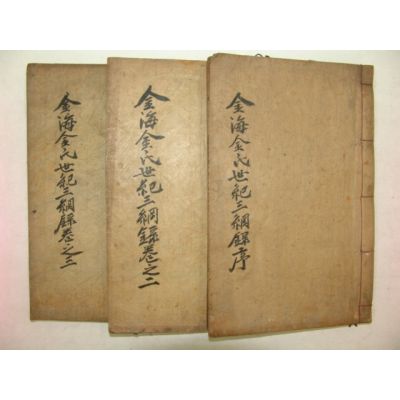 金海金氏世紀三綱錄序
金海金氏世紀三綱錄卷之二
金海金氏世紀三綱錄卷之三